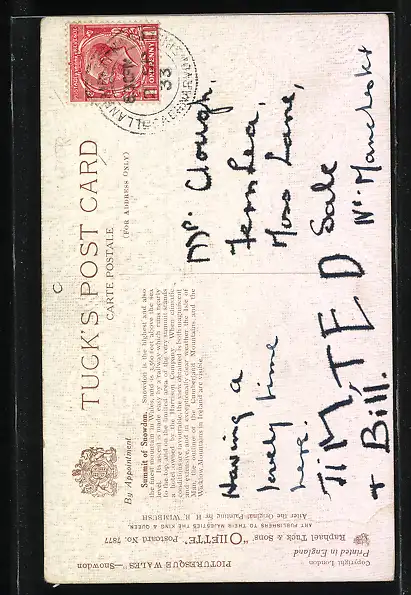 TUCK'S POST CARD
CARTE POSTALE
(FOR ADDRESS ONLY)
By Appointment
Summit of Snowdon. Snowdon is the highest and also
the finest mountain in Wales, and is 3,560 feet above the sea
level. Its ascent is made easy by a railway which runs nearly
to the top, and on the limited area of the very summit stands
a hotel owned by the Harrison Company. When climatic
conditions are favourable, the views obtained is both magnificent
and extensive, and in exceptionally clear weather the Isle of
Man, the outlines of the Cumberland Mountains, and the
Wicklow Mountains in Ireland are visible.
Having a
lovely time
here.
+ Bill.
Mr. Clough,
Fern Lea,
Moss Lane,
Sale
Nr. Manchester
ONE PENNY
33
PICTURESQUE WALES"—Snowdon
Raphael Tuck & Sons' "OILETTE" Postcard No. 7877
ART PUBLISHERS TO THEIR MAJESTIES THE KING & QUEEN.
After the Original Painting by H. B. WIMBUSH
Copyright London
Printed in England